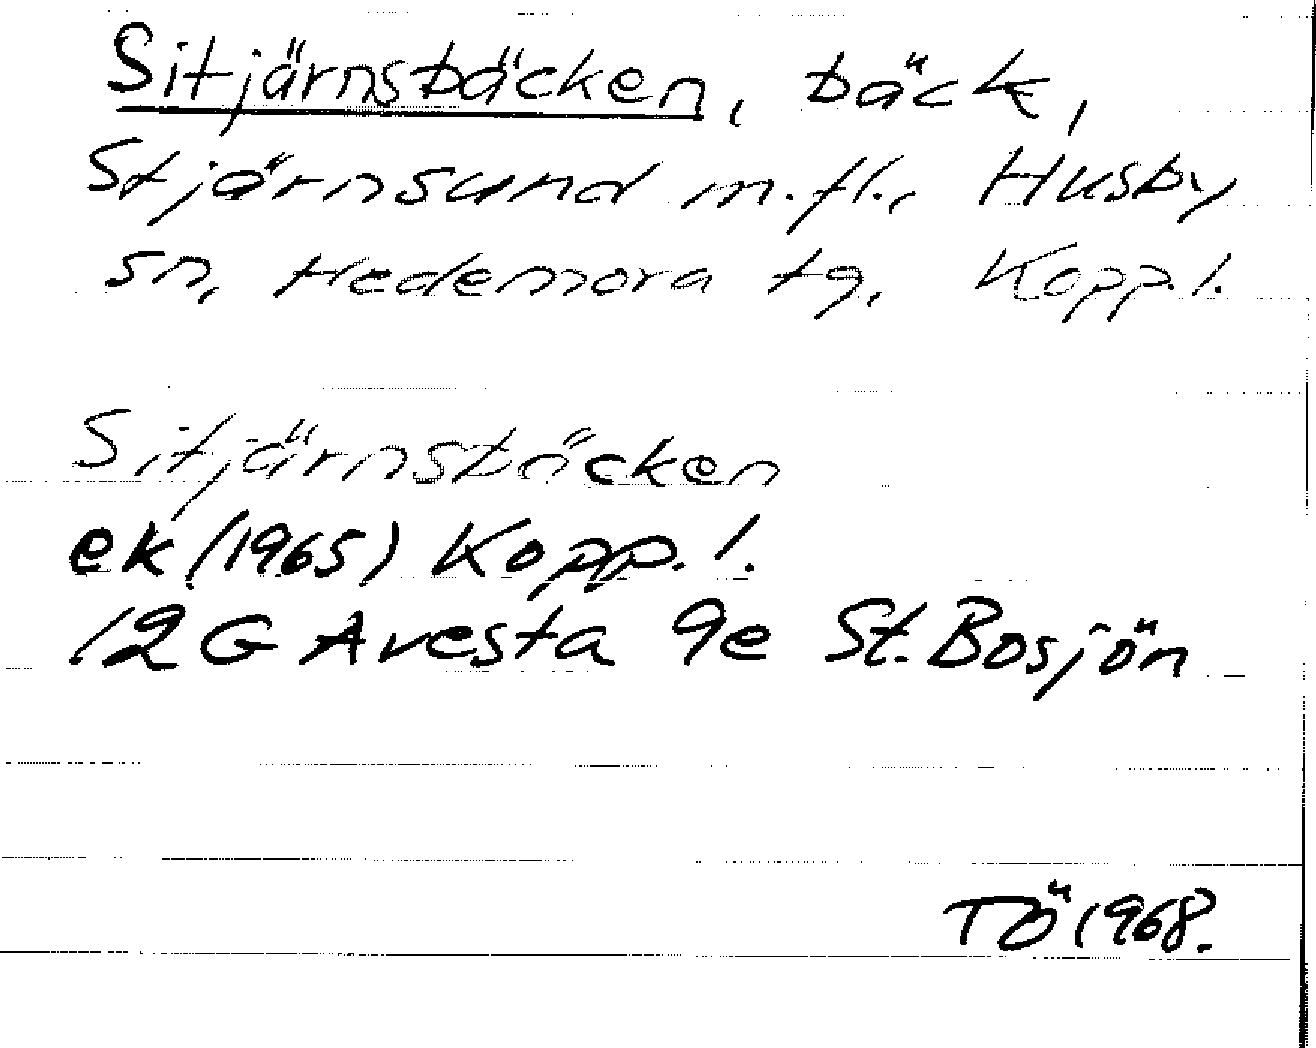 Sitjärnsbäcken, bäck,
Stjärnsund m.fl., Husby
sn, Hedemora tg, Kopp.l.
Sitjärnsbäcken
ek (1965) Kopp. l.
12 G Avesta 9e St. Bosjön
TÖ 1968.